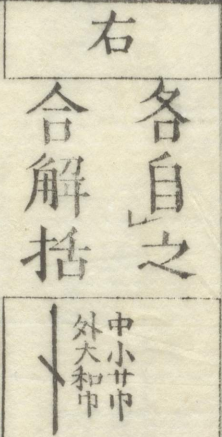 右
各自之
合解括
中小廾巾
外大和巾